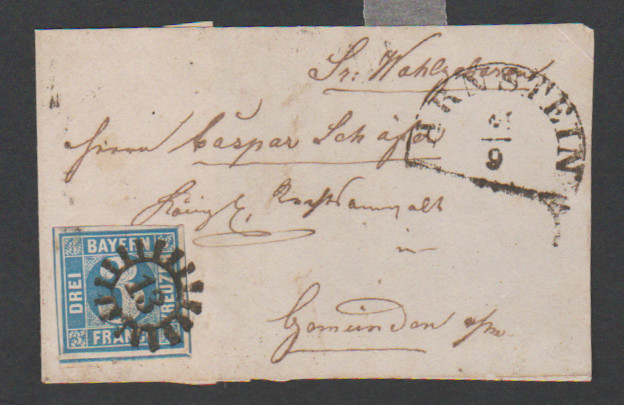 Sr: Wohlgeboren
ARNSTEIN
9
Herrn Caspar Schäfer
Königl. Rechtsanwalt
in
Gemünden a/m.
BAYERN
DREI
KREUZER
FRANCO
13